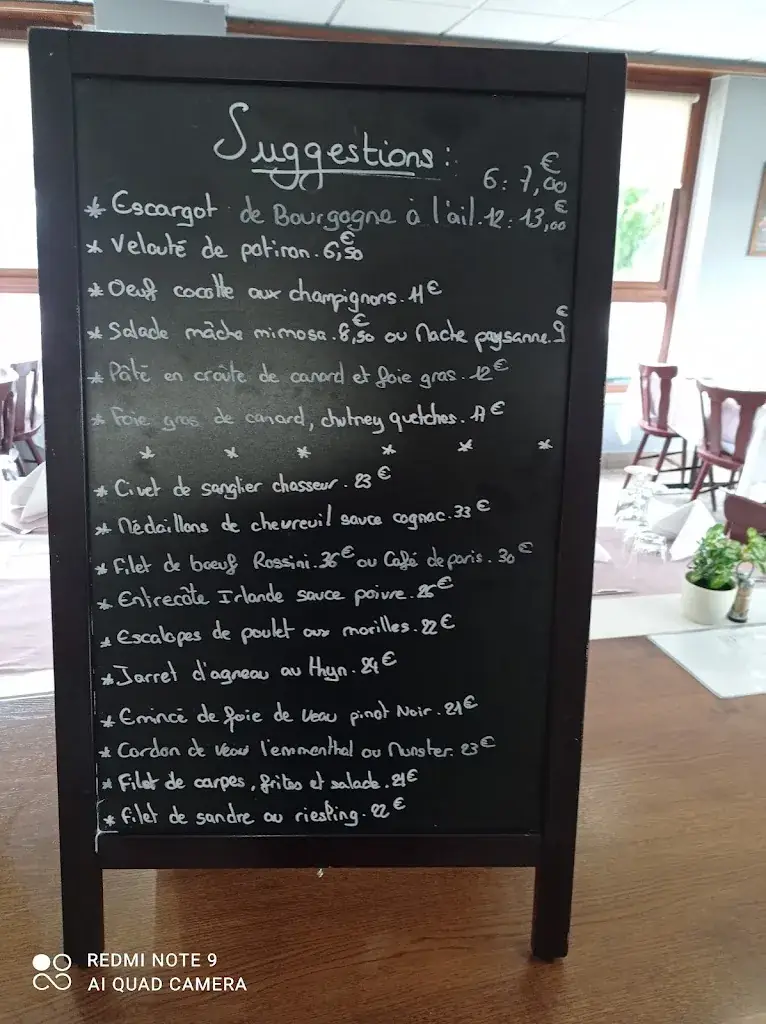 Suggestions:
6: 7,00€
* Escargot de Bourgogne à l'ail. 12: 13,00€
* Velouté de potiron. 6,50€
* Oeuf cocotte aux champignons. 11€
* Salade mâche mimosa. 8,50€ ou Mache paysanne. 9€
* Pâté en croûte de canard et foie gras. 12€
* Foie gras de canard, chutney quetches. 17€
* * * * * *
* Civet de sanglier chasseur. 23€
* Médaillons de chevreuil sauce cognac. 33€
* Filet de boeuf Rossini. 36€ ou Café de paris. 30€
* Entrecôte Irlande sauce poivre. 26€
* Escalopes de poulet aux morilles. 22€
* Jarret d'agneau au thyn. 24€
* Emincé de foie de veau pinot Noir. 21€
* Cordon de veau l'emmenthal ou Munster. 23€
* Filet de carpes, frites et salade. 21€
* Filet de sandre au riesling. 22€
REDMI NOTE 9
AI QUAD CAMERA